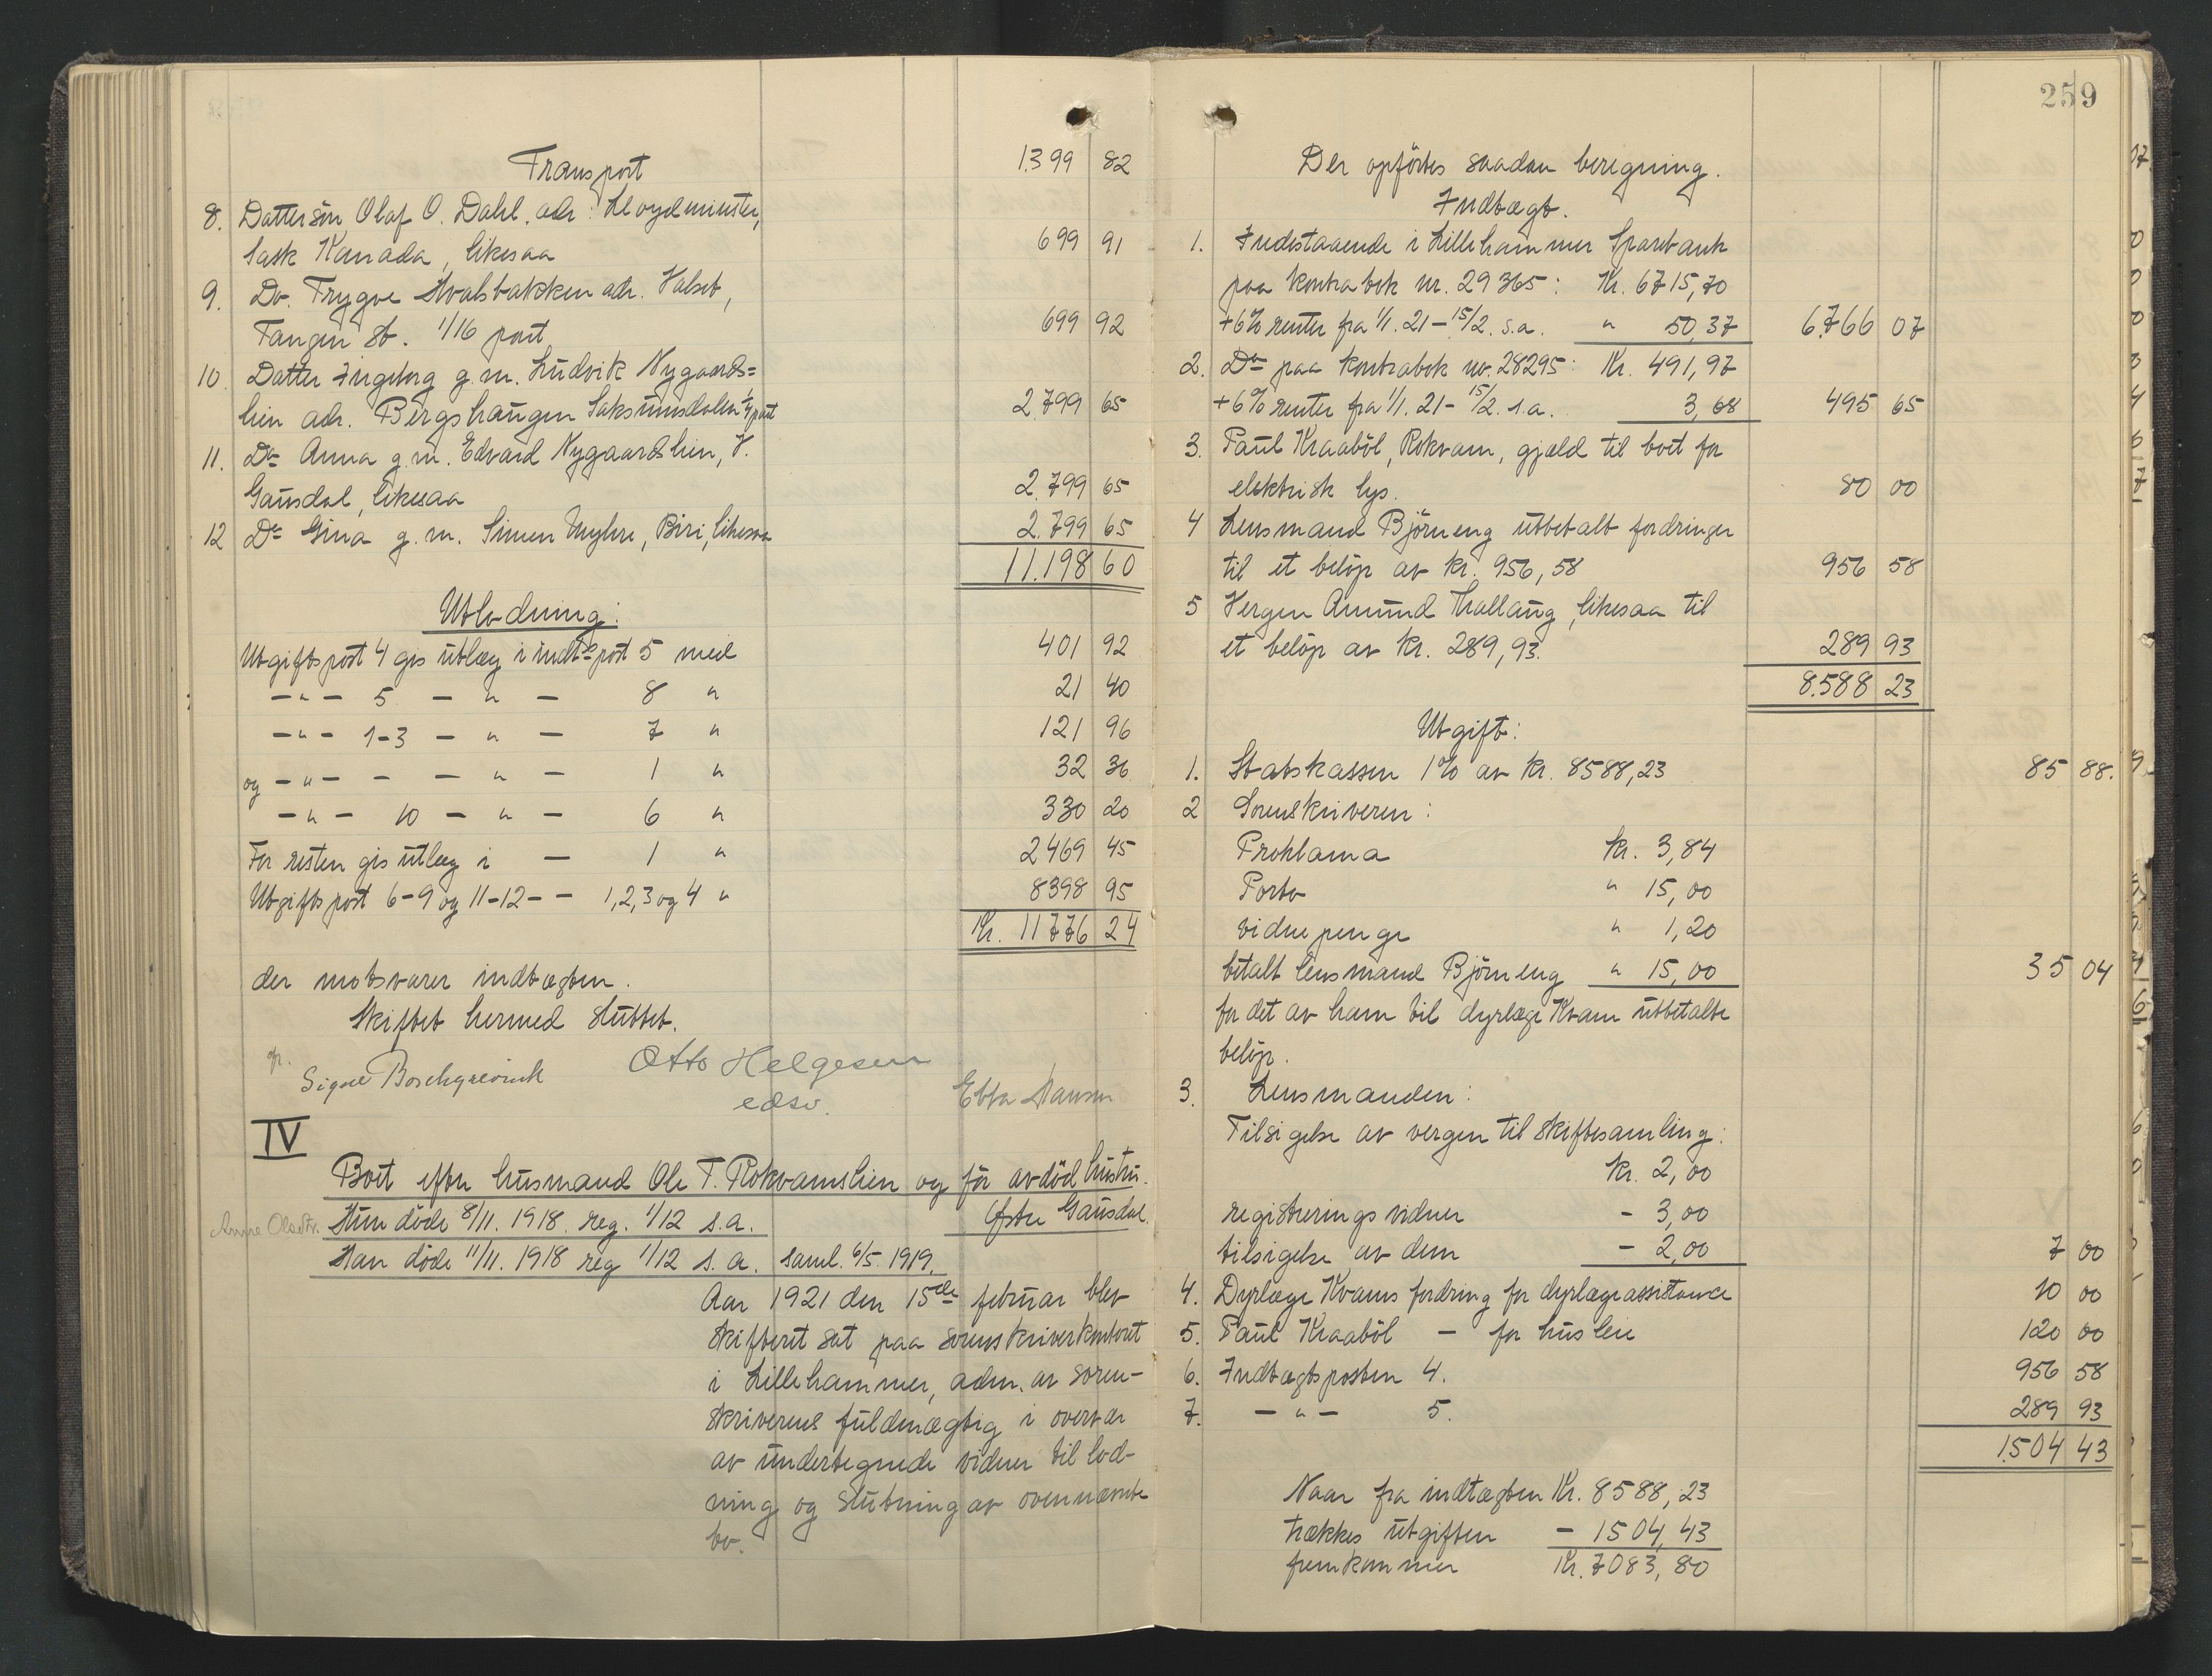 Transport 1.399 82
8. Dattersön Olaf O. Dahl. adr: Lloydminster,
Sask Kanada, likesaa 699 91
9. Do. Trygve Hvalsbakken adr. Valset,
Tangen st. 1/16 part 699 92
10. Datter Ingeborg g.m. Ludvik Nygaards=
lien adr. Bergshaugen Saksumsdalen 1/4 part 2.799 65
11. Do Anna g.m. Edvard Nygaardslien, V.
Gausdal, likesaa 2.799 65
12 Do Gina g.m. Simen Myhre, Biri, likesaa 2.799 65
11.198 60
Utlodning:
Utgiftspost 4 gis utlæg i indt.s post 5 med 401 92
-"- 5 - " - 8 " 21 40
-"- 1-3 - " - 7 " 121 96
og -"- - - " - 1 " 32 36
-"- 10 - " - 6 " 330 20
For resten gis utlæg i - 1 " 2469 45
Utgiftspost 6-9 og 11-12 - - 1,2,3 og 4 " 8398 95
Kr. 11776 24
der motsvarer indtægten.
Skiftet hermed sluttet.
Otto Helgesen
Signe Borchgrevink
edsv.
Ebba Hansen
IV
Boet efter husmand Ole T. Rokvamslien og før avdöd hustru.
Anne Olsdtr. Hun döde 8/11. 1918. reg. 1/12 s.a. Østre Gausdal.
Han döde 11/11. 1918 reg 1/12 s.a. saml. 6/5. 1919.
Aar 1921 den 15de februar blev
skifteret sat paa sorenskriverkontoret
i Lillehammer, adm. av soren-
skriverens fuldmægtig i overvær
av undertegnede vidner til lod-
ning og slutning av ovennævnte
bo.
259
Der opförtes saadan beregning.
Indtægt.
1. Indestaaende i Lillehammer Sparebank
paa kontrabok nr. 29365: Kr. 6715,70
+6% renter fra 1/1. 21-15/2. s.a. " 50,37 6.766 07
2. Do paa kontrabok nr. 28295: Kr. 491,97
+6% renter fra 1/1. 21-15/2. s.a. 3,68 495 65
3. Paul Kraaböl, Rokvam, gjæld til boet for
elektrisk lys. 80 00
4 Lensmand Björneng utbetalt fordringer
til et belöp av kr. 956,58 956 58
5 Vergen Amund Thallaug, likesaa til
et belöp av kr. 289,93. 289 93
8.588 23
Utgift:
1. Statskassen 1% av kr. 8588,23 85 88.
2 Sorenskriveren:
Proklama kr. 3,84
Porto " 15,00
vidnepenge " 1,20
betalt lensmand Björneng " 15,00 35 04
for det av ham til dyrlæge Kvam utbetalte
belöp.
3. Lensmanden:
Tilsigelse av vergen til skiftesamling:
kr. 2,00
registreringsvidner - 3,00
tilsigelse av dem - 2,00 7 00
4. Dyrlæge Kvams fordring for dyrlægeassistance 10 00
5. Paul Kraaböl - for husleie 120 00
6. Indtægtsposten 4. 956 58
7. -"- 5. 289 93
1.504 43
Naar fra indtægten Kr. 8588,23
trækkes utgiften - 1504,43
fremkommer Kr. 7083,80